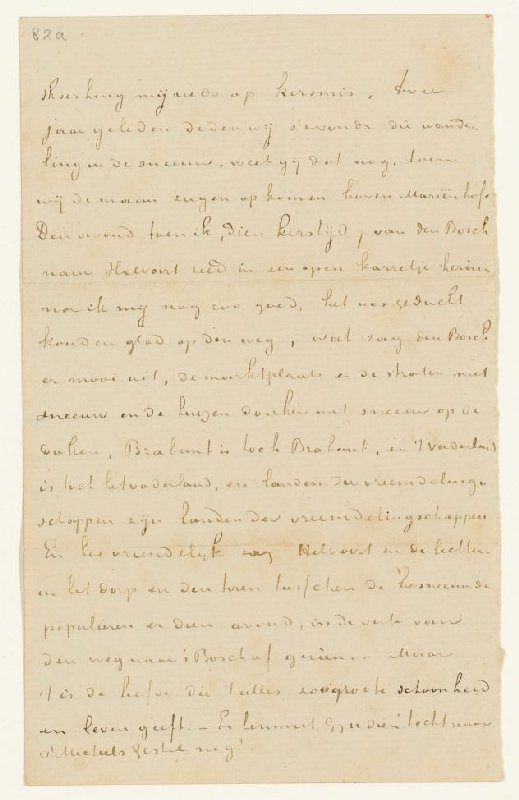 82a
Ik verheug mij reeds op kersmis. twee
jaar geleden deden wij s'avonds die wande-
ling in de sneeuw, weet gij dat nog, toen
wij de maan zagen opkomen boven Mariënhof.
Den avond toen ik, dien kerstijd, van den Bosch
naar Helvoirt reed in een open karretje herinner
ik mij nog zoo goed, het was geducht
koud en glad op den weg, wat zag den Bosch
er mooi uit, de marktplaats en de straten met
sneeuw en de huizen donker met sneeuw op de
daken, Brabant is toch Brabant, en 't vaderland
is toch het vaderland, en landen der vreemdelingen
schappen zijn landen der vreemdelingschappen
En hoe vriendelijk zag Helvoirt en de lichten
in het dorp en den toren tusschen de besneeuwde
populieren er dien avond, in de verte van
den weg naar 's Bosch af gezien. - Maar
't is de liefde die 't alles zoo groote schoonheid
en leven geeft. - En herinnert Gij u dien tocht naar
St. Michiels Gestel nog?